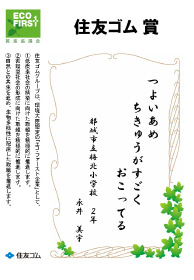 ECO
FIRST
環境先進企業
住友ゴム 賞
つよいあめ
ちきゅうがすごく
おこってる
都城市立梅北小学校 2年
永井 美宇
住友ゴムグループは、環境大臣認定の「エコ・ファースト企業」として、
①低炭素社会の構築に向けた取組を積極的に推進します。
②循環型社会の形成に向けた取組を積極的に推進します。
③自然との共生を図め、生物多様性に配慮した取組を推進します。
住友ゴム